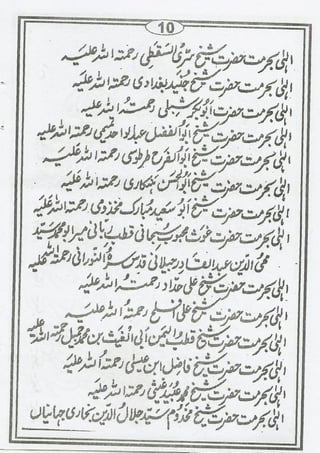 10
الٰہی بحرمت حضرت شیخ سری السقطی رحمتہ اللہ علیہ
الٰہی بحرمت حضرت شیخ جنید بغدادی رحمتہ اللہ علیہ
الٰہی بحرمت حضرت ابوبکر شبلی رحمتہ اللہ علیہ
الٰہی بحرمت حضرت شیخ ابوالفضل عبدالواحد تمیمی رحمتہ اللہ علیہ
الٰہی بحرمت حضرت شیخ ابوالفرح طرطوسی رحمتہ اللہ علیہ
الٰہی بحرمت حضرت شیخ ابوالحسن ہنکاری رحمتہ اللہ علیہ
الٰہی بحرمت حضرت شیخ ابو سعید مبارک مخذومی رحمتہ اللہ علیہ
الٰہی بحرمت حضرت غوث محبوب سبحانی قطب ربانی میر ابو محمد سید
محی الدین عبدالقادر جیلانی قدس سرہٗ النورانی رحمتہ اللہ علیہ
الٰہی بحرمت حضرت شیخ علی حداد رحمتہ اللہ علیہ
الٰہی بحرمت حضرت شیخ علی افلح رحمتہ اللہ علیہ
الٰہی بحرمت حضرت شیخ قطب الیمن ابی الغیث بن محمد جمیل رحمتہ اللہ علیہ
الٰہی بحرمت حضرت شیخ فاضل ابن عیسٰی رحمتہ اللہ علیہ
الٰہی بحرمت حضرت شیخ محمد عبید غیثی رحمتہ اللہ علیہ
الٰہی بحرمت حضرت شیخ مخدوم سید جلال الدین بخاری جہانیاں